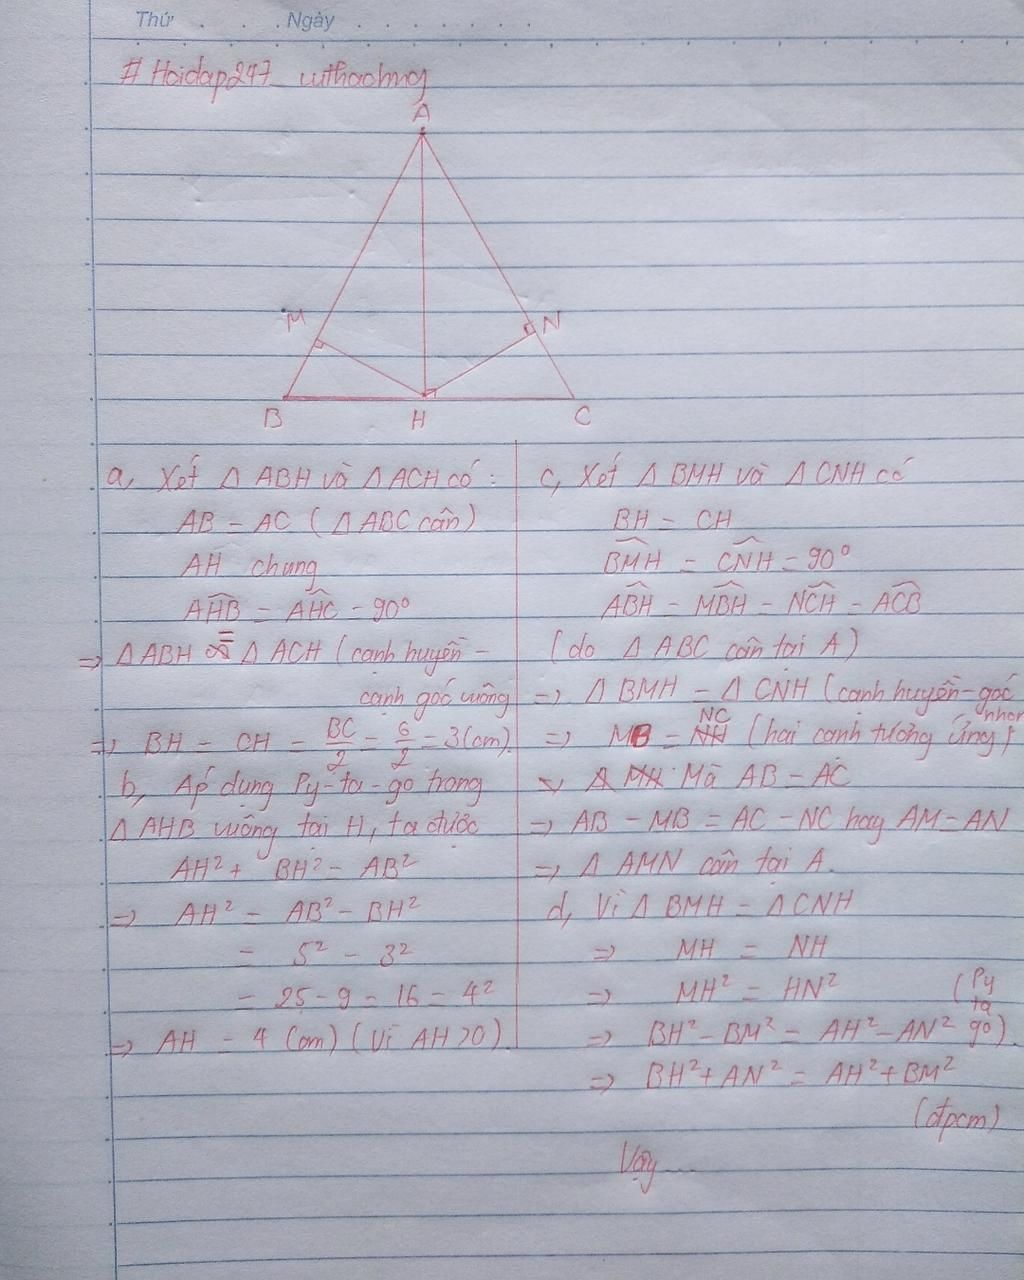 Thứ . . . . Ngày . . . . . . . .
# Hoidap247_
A
M
N
B
H
C
a, Xét Δ ABH và Δ ACH có :
AB = AC ( Δ ABC cân )
AH chung
AHB = AHC = 90°
=> Δ ABH = Δ ACH ( cạnh huyền -
cạnh góc vuông
=> BH = CH = BC/2 = 6/2 = 3 (cm).
b, Áp dụng Py-ta-go trong
Δ AHB vuông tại H, ta được
AH² + BH² = AB²
=> AH² = AB² - BH²
= 5² - 3²
= 25 - 9 = 16 = 4²
=> AH = 4 (cm) ( Vì AH > 0 )
c, Xét Δ BMH và Δ CNH có
BH = CH
BMH = CNH = 90°
ABH = MBH = NCH = ACB
( do Δ ABC cân tại A )
=> Δ BMH = Δ CNH ( cạnh huyền - góc
nhọn
=> MB = NC ( hai cạnh tương ứng )
Mà AB = AC
=> AB - MB = AC - NC hay AM = AN
=> Δ AMN cân tại A.
d, Vì Δ BMH = Δ CNH
=> MH = NH
=> MH² = HN²
=> BH² - BM² = AH² - AN² ( Py ta go ).
=> BH² + AN² = AH² + BM²
(đpcm)
Vậy ....